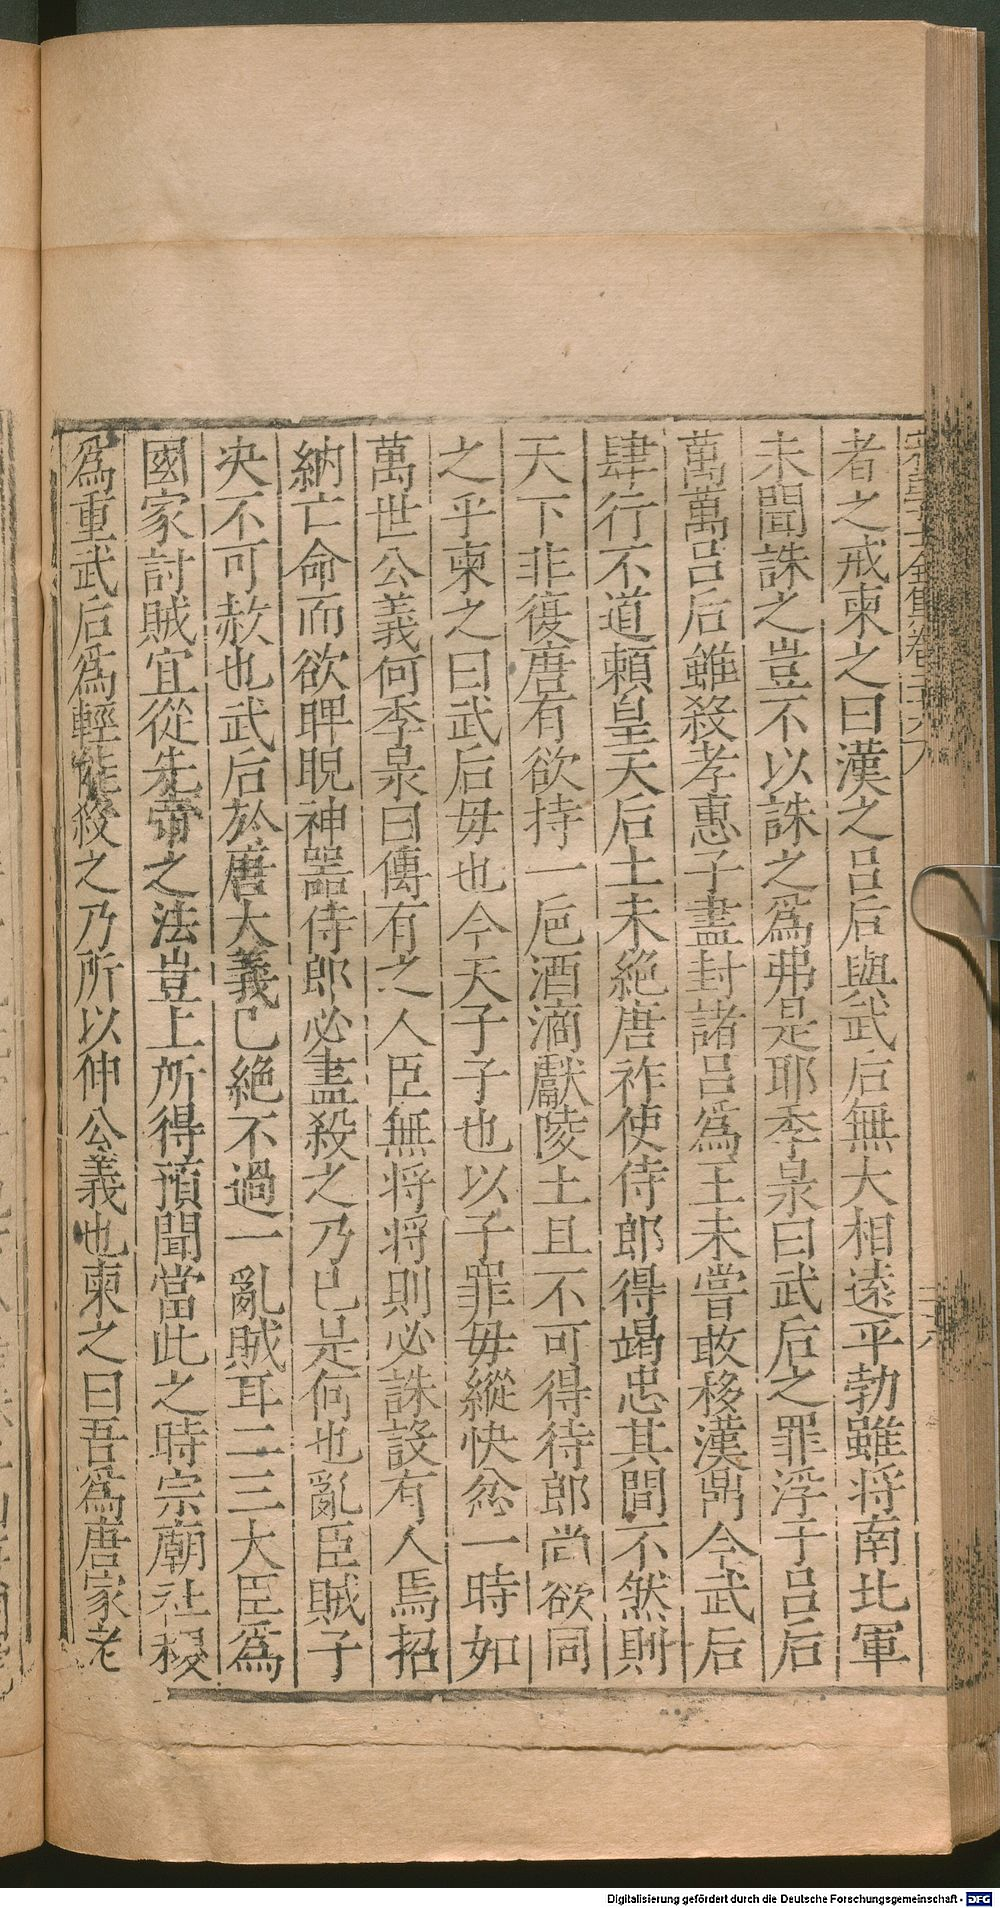 者之戒柬之曰漢之呂后與武后無大相遠平勃雖将南北軍
未聞誅之豈不以誅之為弗是耶季泉曰武后之罪浮于呂后
萬萬呂后雖殺孝惠子盡封諸呂為王未嘗敢移漢鼎今武后
肆行不道頼皇天后土未絶唐祚使侍郎得竭忠其間不然則
天下非復唐有欲持一巵酒滴獻陵土且不可得待郎尚欲同
之乎柬之曰武后毋也今天子子也以子罪毋縱快忿一時如
萬世公義何季泉曰傳有之人臣無将将則必誅設有人焉招
納亡命而欲睥睨神噐侍郎必盡殺之乃已是何也亂臣賊子
决不可赦也武后於唐大義已絶不過一亂賊耳二三大臣為
國家討賊宜從先帝之法豈上所得預聞當此之時宗廟社稷
為重武后為輕能殺之乃所以伸公義也柬之曰吾為唐家老
Digitalisierung gefördert durch die Deutsche Forschungsgemeinschaft - DFG